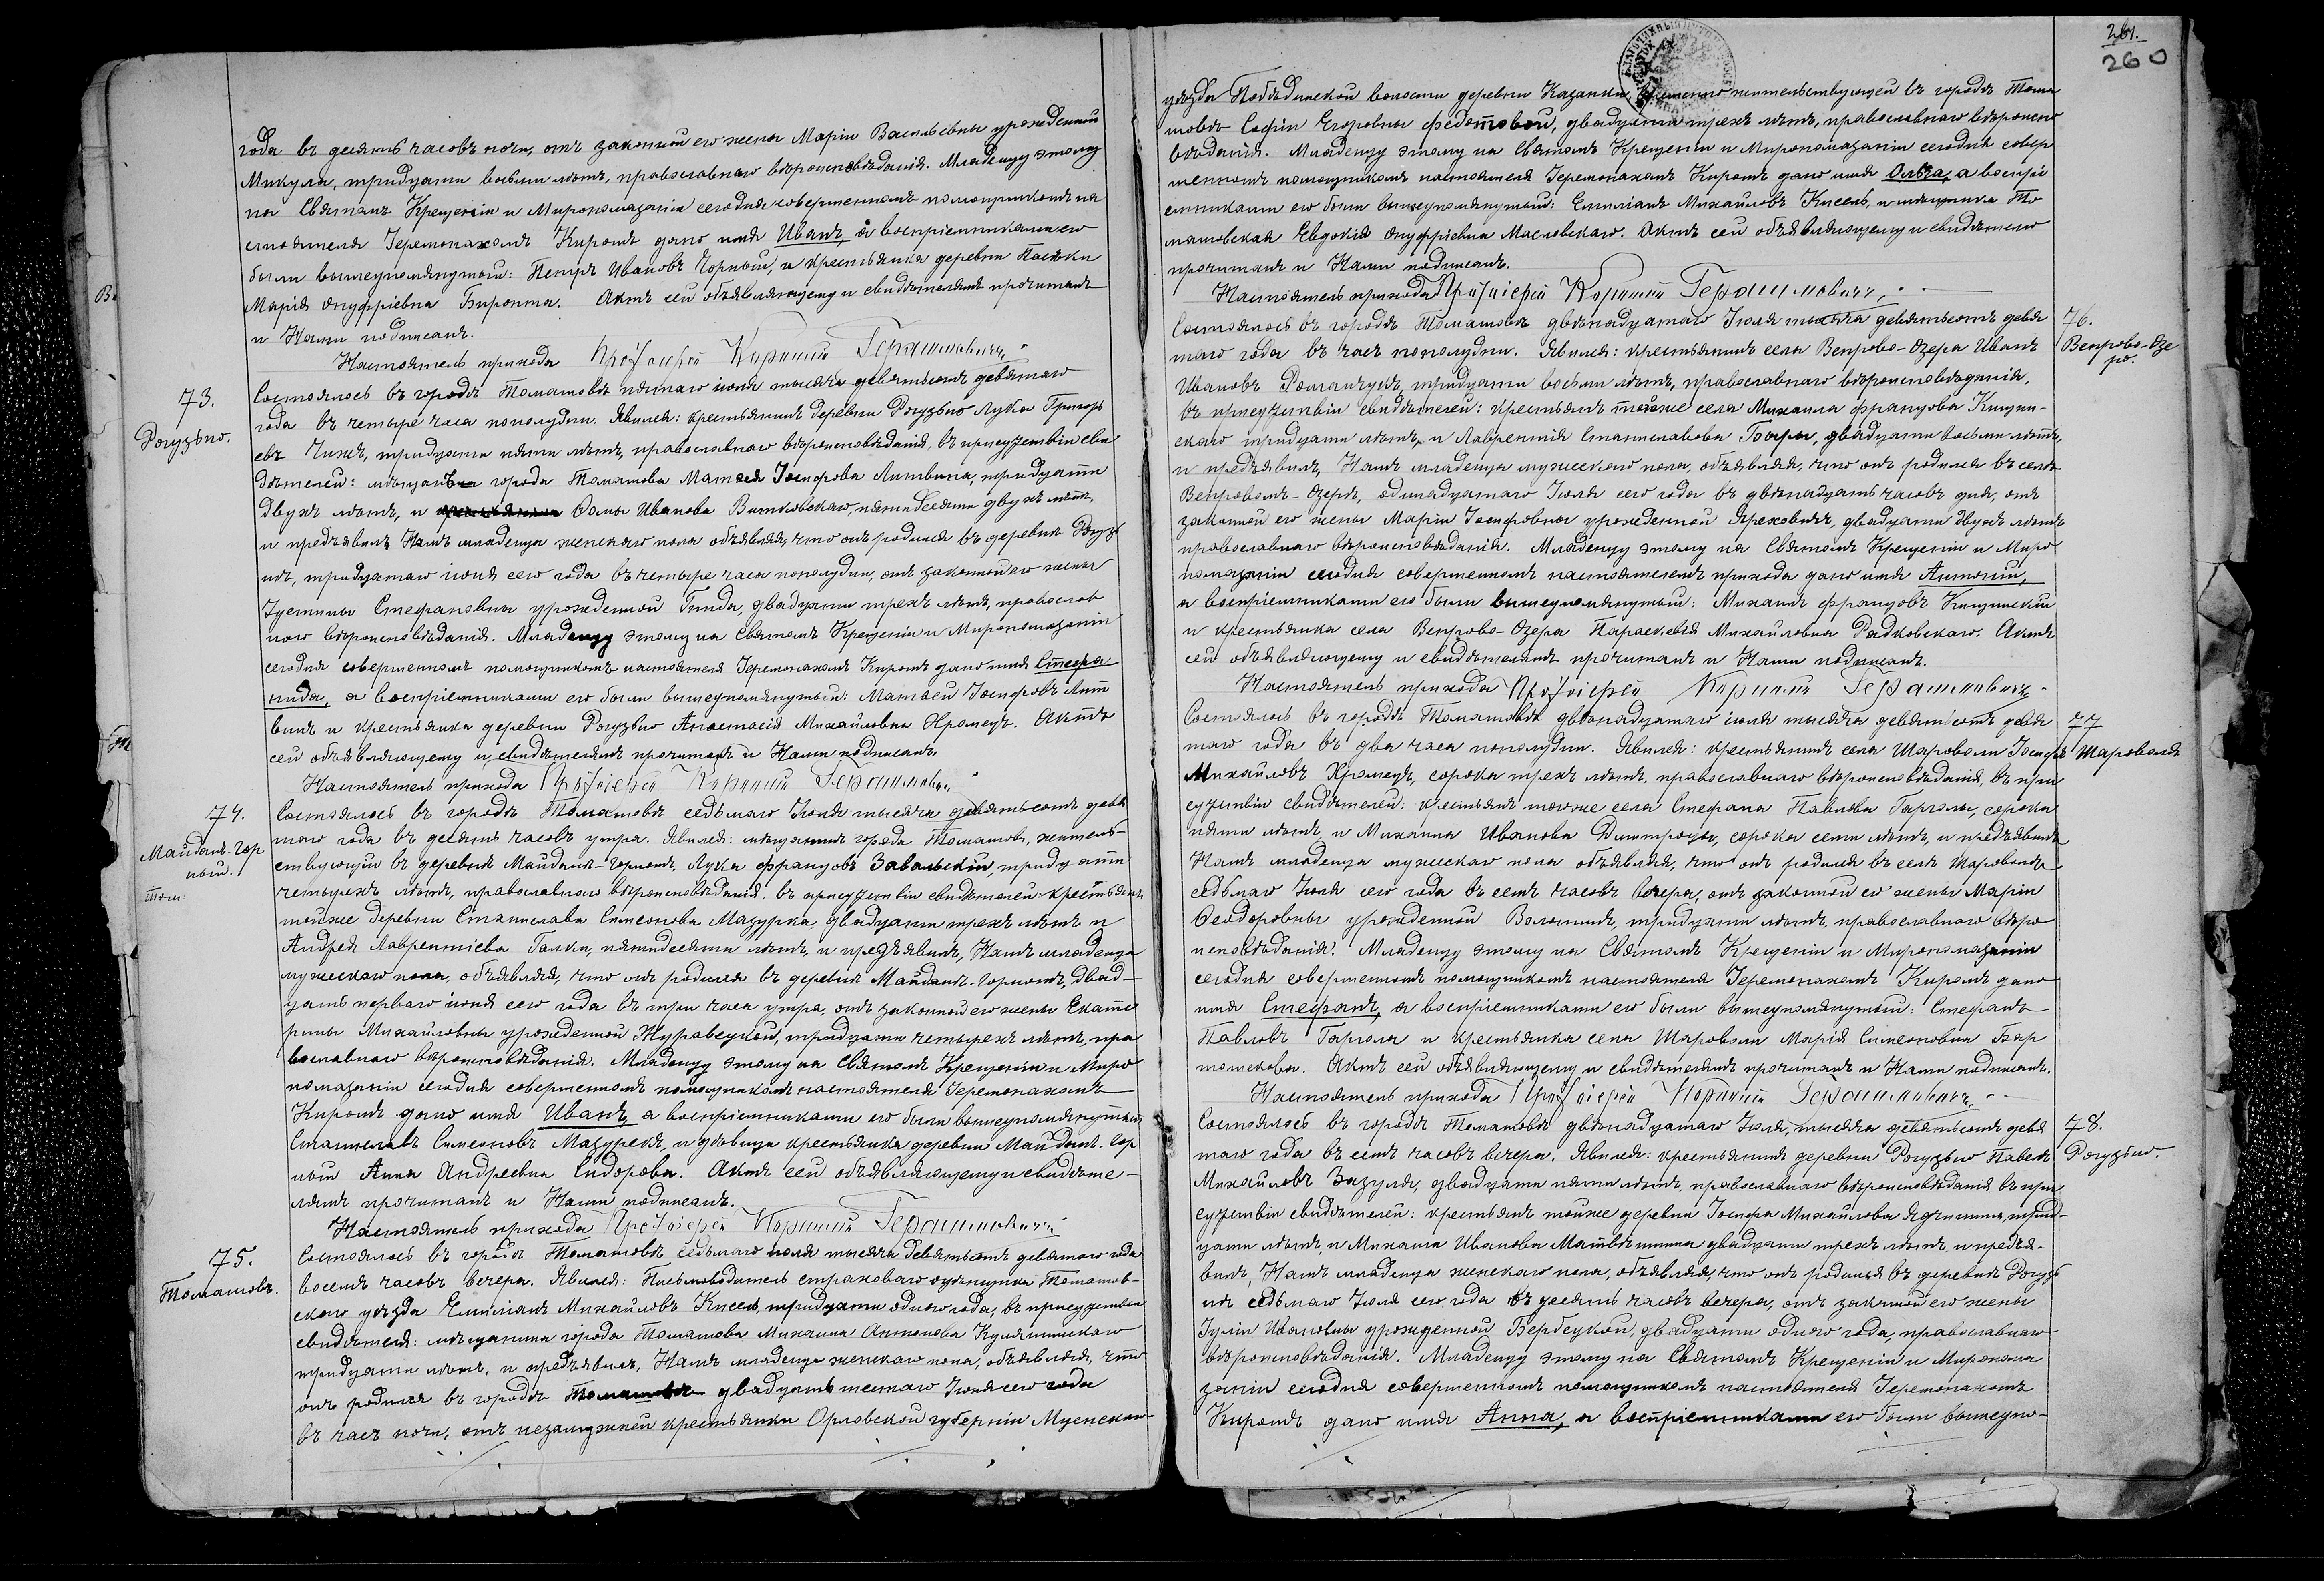 года въ десять часовъ ночи, отъ законной его жены Маріи Васильевны урожденной
Микула, тридцати восьми лѣтъ, православнаго вѣроисповѣданія. Младенцу этому
на Святомъ Крещеніи и Миропомазаніи сегодня совершенномъ помощникомъ на
стоятеля Іеромонахомъ Киромъ дано имя Иванъ, а воспріемниками его
были вышеупомянутый: Петръ Ивановъ Чорный, и крестьянка деревни Пасѣки
Марія Онуфріевна Биронта. Актъ сей объявляющему и свидѣтелямъ прочитанъ
и Нами подписанъ.
Настоятель прихода Протоіерей Корнилій Герасимовичъ
73.
Рогузьно.
Состоялось въ городѣ Томашовѣ пятаго іюля тысяча девятьсотъ девятаго
года въ четыре часа пополудни. Явился: крестьянинъ деревни Рогузьно Лука Григорь
евъ Чижъ, тридцати пяти лѣтъ, православнаго вѣроисповѣданія, въ присутствіи сви
дѣтелей: мѣщанъ города Томашова Матѳея Іосифова Литвина, тридцати
двухъ лѣтъ, и Ѳомы Иванова Витковскаго, пятидесяти двухъ лѣтъ,
и предъявилъ Намъ младенца женскаго пола объявляя, что онъ родился въ деревнѣ Рогузь
нѣ, тридцатаго іюня сего года въ четыре часа пополудни, отъ законной его жены
Іустины Стефановны урожденной Гнида, двадцати трехъ лѣтъ, православ
наго вѣроисповѣданія. Младенцу этому на Святомъ Крещеніи и Миропомазаніи
сегодня совершенномъ помощникомъ настоятеля Іеромонахомъ Киромъ дано имя Стефа
нида, а воспріемниками его были вышеупомянутый: Матѳей Іосифовъ Лит
винъ и крестьянка деревни Рогузьно Анастасія Михайловна Кромецъ. Актъ
сей объявляющему и свидѣтелямъ прочитанъ и Нами подписанъ.
Настоятель прихода Протоіерей Корнилій Герасимовичъ
74.
Майданъ-Гор
ный.
Состоялось въ городѣ Томашовѣ седьмаго Іюля тысяча девятьсотъ девя
таго года въ десять часовъ утра. Явился: мѣщанинъ города Томашова, житель-
ствующій въ деревнѣ Майданъ-Горномъ, Лука Францовъ Завальскій, тридцати
четырехъ лѣтъ, православнаго вѣроисповѣданія, въ присутствіи свидѣтелей: крестьянъ
тойже деревни Станислава Симеонова Мазурка, двадцати трехъ лѣтъ и
Андрея Лаврентіева Галка, пятидесяти лѣтъ, и предъявилъ, Намъ младенца
мужескаго пола, объявляя, что онъ родился въ деревнѣ Майданъ-Горномъ, двад-
цать перваго іюня сего года въ три часа утра, отъ законной его жены Екате
рины Михайловны урожденной Журавецкой, тридцати четырехъ лѣтъ, пра
вославнаго вѣроисповѣданія. Младенцу этому на Святомъ Крещеніи и Миро
помазаніи сегодня совершенномъ помощникомъ настоятеля Іеромонахомъ
Киромъ дано имя Иванъ, а воспріемниками его были вышеупомянутый
Станиславъ Симеоновъ Мазурекъ, и вдовица крестьянка деревни Майданъ-Гор
ный Анна Андреевна Сидорова. Актъ сей объявляющему и свидѣте-
лямъ прочитанъ и Нами подписанъ.
Настоятель прихода Протоіерей Корнилій Герасимовичъ
75.
Томашовъ.
Состоялось въ городѣ Томашовѣ седьмаго іюля тысяча девятьсотъ девятаго года
восемь часовъ вечера. Явился: Письмоводитель страховаго оцѣнщика Томашов-
скаго уѣзда Емиліанъ Михайловъ Кисель, тридцати одного года, въ присутствіи
свидѣтеля: мѣщанина города Томашова Михаила Антонова Кулянинскаго
тридцати лѣтъ, и предъявилъ, Намъ младенца женскаго пола, объявляя, что
онъ родился въ городѣ Томашовѣ двадцать шестаго Іюня сего года
въ часъ ночи, отъ незамужней крестьянки Орловской губерніи Мценскаго
261.
260
уѣзда деревни Казанки, временно жительствующей въ городѣ Тома
шовѣ Софіи Егоровны Федотовой, двадцати трехъ лѣтъ, православнаго вѣроиспо
вѣданія. Младенцу этому на Святомъ Крещеніи и Миропомазаніи сегодня совер
шенномъ помощникомъ настоятеля Іеромонахомъ Киромъ дано имя Ольга, а воспріе
мниками его были вышеупомянутый: Емиліанъ Михайловъ Кисель, и мѣщанка То
машовская Евдокія Онуфріевна Масловскаго. Актъ сей объявляющему и свидѣтелю
прочитанъ и Нами подписанъ.
Настоятель прихода Протоіерей Корнилій Герасимовичъ
76.
Вепрово-Озе
ро.
Состоялось въ городѣ Томашовѣ двѣнадцатаго Іюля тысяча девятьсотъ девя
таго года въ часъ пополудни. Явился: крестьянинъ села Вепрово-Озера Иванъ
Ивановъ Романчукъ, тридцати восьми лѣтъ, православнаго вѣроисповѣданія,
въ присутствіи свидѣтелей: крестьянъ тойже села Михаила Францова Кицин-
скаго тридцати лѣтъ, и Лаврентія Станиславова Гоыры, двадцати восьми лѣтъ,
и предъявилъ, Намъ младенца мужескаго пола, объявляя, что онъ родился въ селѣ
Вепровомъ-Озерѣ, одинадцатаго Іюля сего года въ двѣнадцать часовъ дня, отъ
законной его жены Маріи Іосифовны урожденной Яреховичъ, двадцати двухъ лѣтъ
православнаго вѣроисповѣданія. Младенцу этому на Святомъ Крещеніи и Миро
помазаніи сегодня совершенномъ настоятелемъ прихода дано имя Антоній,
а воспріемниками его были вышеупомянутый: Михаилъ Францовъ Кицинскій
и крестьянка села Вепрово-Озера Параскевія Михайловна Радковскаго. Актъ
сей объявляющему и свидѣтелямъ прочитанъ и Нами подписанъ.
Настоятель прихода Протоіерей Корнилій Герасимовичъ
77
Шароволя
Состоялось въ городѣ Томашовѣ двѣнадцатаго іюля тысяча девятьсотъ девя
таго года въ два часа пополудни. Явился: крестьянинъ села Шароволи Іосифъ
Михайловъ Кромецъ, сорока трехъ лѣтъ, православнаго вѣроисповѣданія, въ при
сутствіи свидѣтелей: крестьянъ тойже села Стефана Павлова Гаргалы, сорока
пяти лѣтъ, и Михаила Иванова Дмитроцы, сорока семи лѣтъ, и предъявилъ
Намъ младенца мужескаго пола объявляя, что онъ родился въ селѣ Шароволѣ
седьмаго Іюля сего года въ семь часовъ вечера, отъ законной его жены Маріи
Ѳеодоровны урожденной Волошинъ, тридцати лѣтъ, православнаго вѣро
исповѣданія. Младенцу этому на Святомъ Крещеніи и Миропомазаніи
сегодня совершенномъ помощникомъ настоятеля Іеромонахомъ Киромъ дано
имя Стефанъ, а воспріемниками его были вышеупомянутый: Стефанъ
Павловъ Гаргала и крестьянка села Шароволи Марія Симеоновна Бар
тошкова. Актъ сей объявляющему и свидѣтелямъ прочитанъ и Нами подписанъ.
Настоятель прихода Протоіерей Корнилій Герасимовичъ
78.
Рогузьно.
Состоялось въ городѣ Томашовѣ двѣнадцатаго Іюля, тысяча девятьсотъ девя
таго года въ семь часовъ вечера. Явился: крестьянинъ деревни Рогузьно Павелъ
Михайловъ Зазуля, двадцати пяти лѣтъ, православнаго вѣроисповѣданія въ при
сутствіи свидѣтелей: крестьянъ тойже деревни Іосифа Михайлова Ядчишина, трид-
цати лѣтъ, и Михаила Иванова Матвѣишина двадцати трехъ лѣтъ, и предъя-
вилъ, Намъ младенца женскаго пола, объявляя, что онъ родился въ деревнѣ Рогузь
нѣ седьмаго Іюля сего года въ десять часовъ вечера, отъ законной его жены
Іуліи Ивановны урожденной Бербецкой, двадцати одного года, православнаго
вѣроисповѣданія. Младенцу этому на Святомъ Крещеніи и Миропома
заніи сегодня совершенномъ помощникомъ настоятеля Іеромонахомъ
Киромъ дано имя Анна, а воспріемниками его были вышеупо-